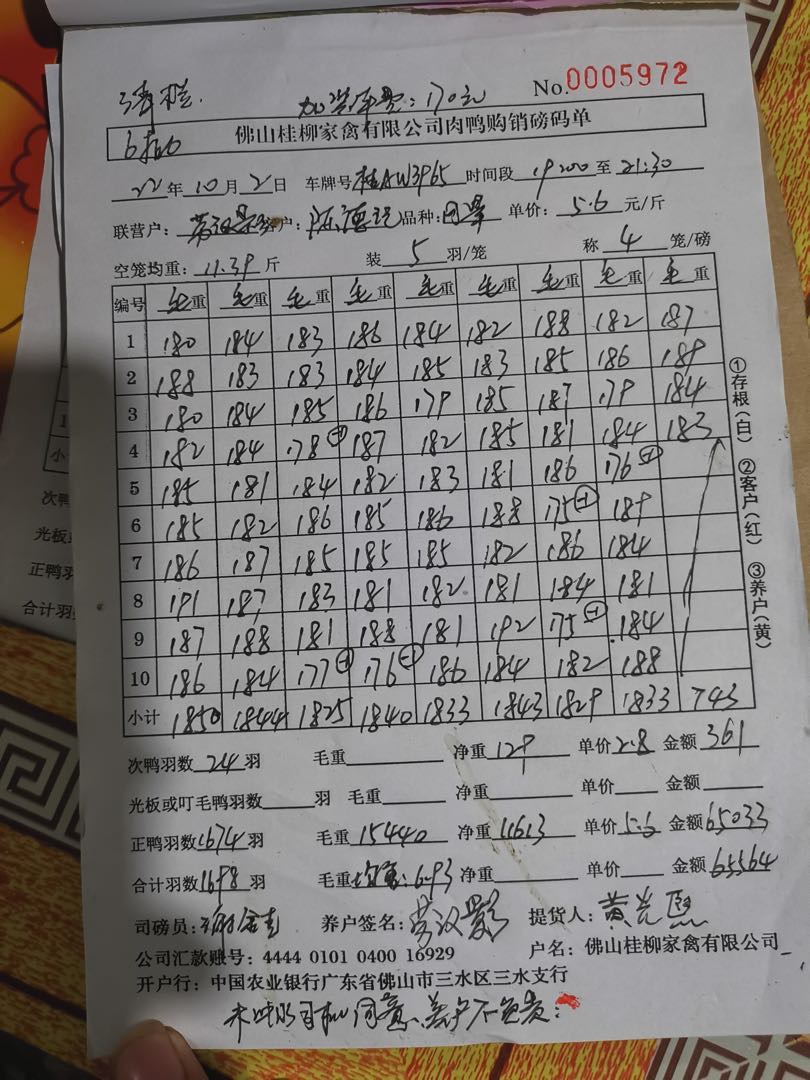 清栏. 加装车费:170元 No.0005972
佛山桂柳家禽有限公司肉鸭购销磅码单
22年10月2日 车牌号桂AW3P65 时间段19200至21:30
联营户: 户:陈德 品种: 单价:5.6元/斤
空笼均重:11.39斤 装5羽/笼 称4笼/磅
编号 毛重 毛重 毛重 毛重 毛重 毛重 毛重 毛重 毛重
1 180 184 183 186 184 182 188 182 187
2 188 183 183 184 185 183 185 186 189
3 180 184 185 186 179 185 187 179 184
4 182 184 178⊖1 187 182 185 181 184 183
5 185 181 184 182 183 181 186 176⊖1
6 185 182 186 185 186 188 175⊖1 189
7 186 187 185 185 185 182 186 184
8 191 187 183 181 182 181 184 181
9 187 188 181 188 181 192 175⊖1 184
10 186 184 177⊖1 176⊖1 186 184 182 188
小计 1850 1844 1825 1840 1833 1843 1829 1833 743
次鸭羽数24羽 毛重 净重129 单价2.8 金额361
光板或叮毛鸭羽数 羽 毛重 净重 单价 金额
正鸭羽数1674羽 毛重15440 净重11613 单价5.6 金额65033
合计羽数1698羽 毛重均重:6.93 净重 单价 金额65564
司磅员: 养户签名:劳汉 提货人:黄光
公司汇款账号:4444 0101 0400 16929 户名:佛山桂柳家禽有限公司
开户行:中国农业银行广东省佛山市三水区三水支行
同意、养户不负责:
①存根(白) ②客户(红) ③养户(黄)
小
次鸭
光板或
正鸭羽
合计羽数